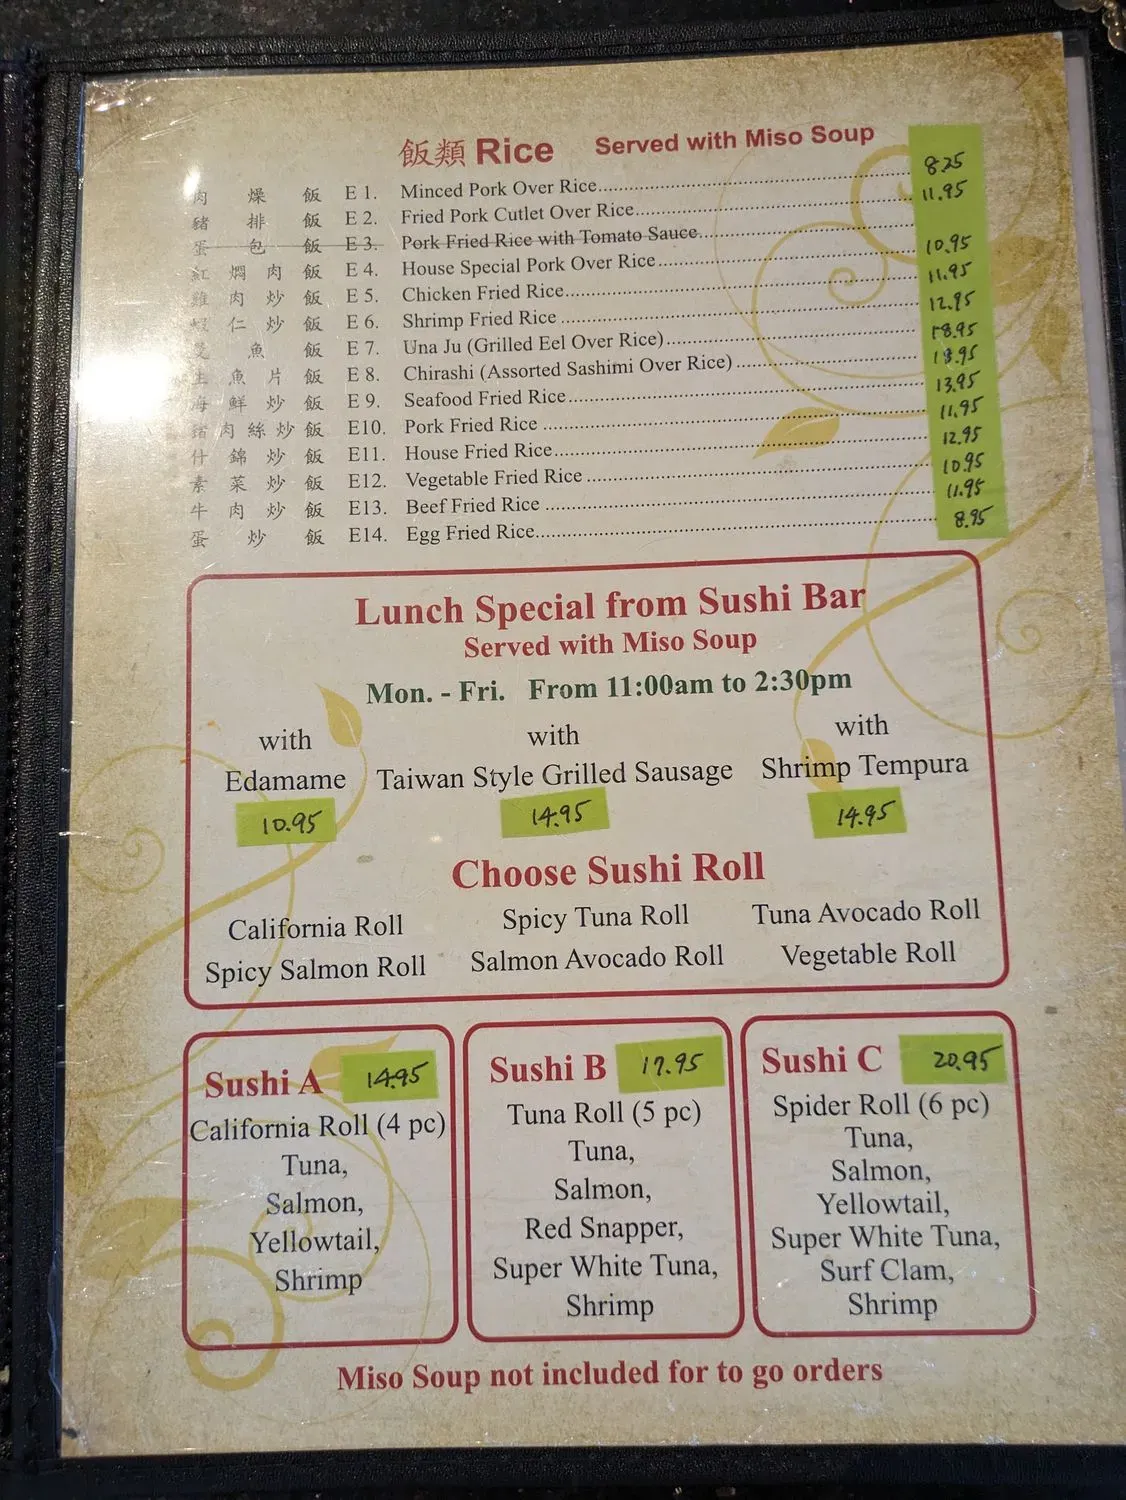 飯類 Rice Served with Miso Soup
肉 燥 飯 E 1. Minced Pork Over Rice 8.25
豬 排 飯 E 2. Fried Pork Cutlet Over Rice 11.95
蛋 包 飯 E 3. Pork Fried Rice with Tomato Sauce
紅 燜 肉 飯 E 4. House Special Pork Over Rice 10.95
雞 肉 炒 飯 E 5. Chicken Fried Rice 11.95
蝦 仁 炒 飯 E 6. Shrimp Fried Rice 12.95
魚 飯 E 7. Una Ju (Grilled Eel Over Rice) 18.95
生 魚 片 飯 E 8. Chirashi (Assorted Sashimi Over Rice)
海 鮮 炒 飯 E 9. Seafood Fried Rice 13.95
豬 肉 絲 炒 飯 E10. Pork Fried Rice 11.95
什 錦 炒 飯 E11. House Fried Rice 12.95
素 菜 炒 飯 E12. Vegetable Fried Rice 10.95
牛 肉 炒 飯 E13. Beef Fried Rice 11.95
蛋 炒 飯 E14. Egg Fried Rice 8.95
Lunch Special from Sushi Bar
Served with Miso Soup
Mon. - Fri. From 11:00am to 2:30pm
with with with
Edamame Taiwan Style Grilled Sausage Shrimp Tempura
10.95 14.95 14.95
Choose Sushi Roll
California Roll Spicy Tuna Roll Tuna Avocado Roll
Spicy Salmon Roll Salmon Avocado Roll Vegetable Roll
Sushi A 14.95
California Roll (4 pc)
Tuna,
Salmon,
Yellowtail,
Shrimp
Sushi B 17.95
Tuna Roll (5 pc)
Tuna,
Salmon,
Red Snapper,
Super White Tuna,
Shrimp
Sushi C 20.95
Spider Roll (6 pc)
Tuna,
Salmon,
Yellowtail,
Super White Tuna,
Surf Clam,
Shrimp
Miso Soup not included for to go orders